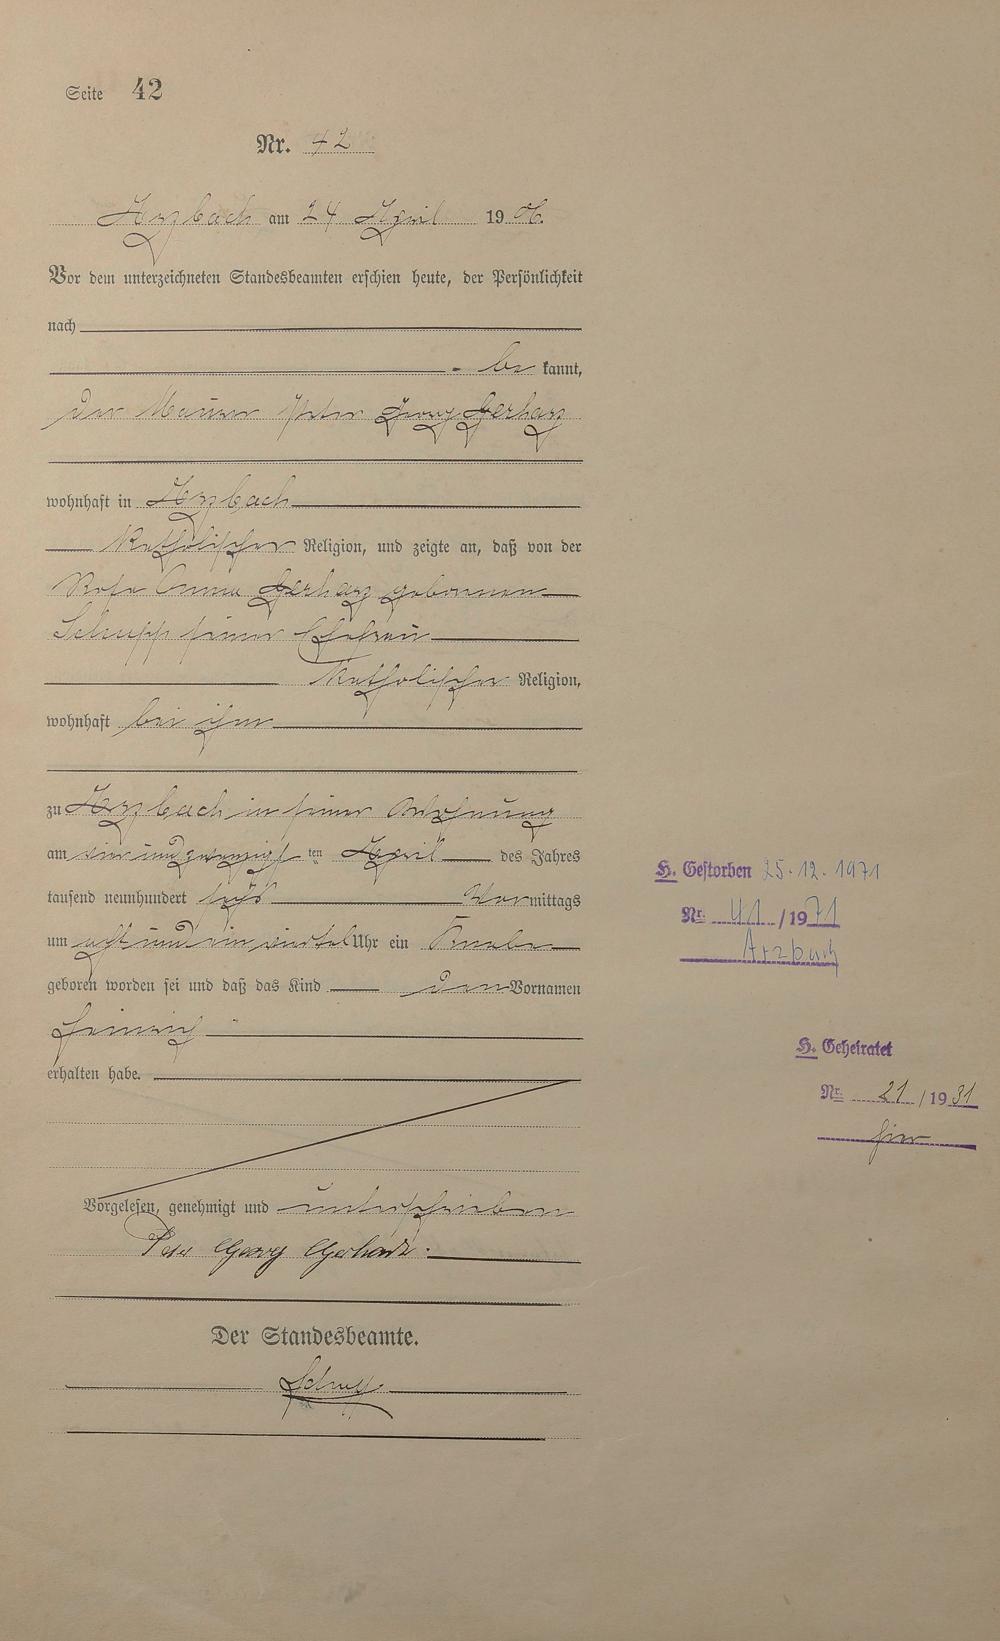 Seite 42
Nr. 42
Arzbach am 24 April 1906.
Vor dem unterzeichneten Standesbeamten erschien heute, der Persönlichkeit
nach
be kannt,
der Maurer Peter Georg Gerharz
wohnhaft in Arzbach
katholischer Religion, und zeigte an, daß von der
Rosa Anna Gerharz geborenen
Schupp seiner Ehefrau
katholischer Religion,
wohnhaft bei ihm
zu Arzbach in seiner Wohnung
am vierundzwanzigsten April des Jahres
tausend neunhundert sechs Vormittags
um acht und ein viertel Uhr ein Knabe
geboren worden sei und daß das Kind den Vornamen
Heinrich
erhalten habe.
Vorgelesen, genehmigt und unterschrieben
Peter Georg Gerharz.
Der Standesbeamte.
H. Gestorben 25.12.1971
Nr. 41/1971
Arzbach
H. Geheiratet
Nr. 21/1931
hier